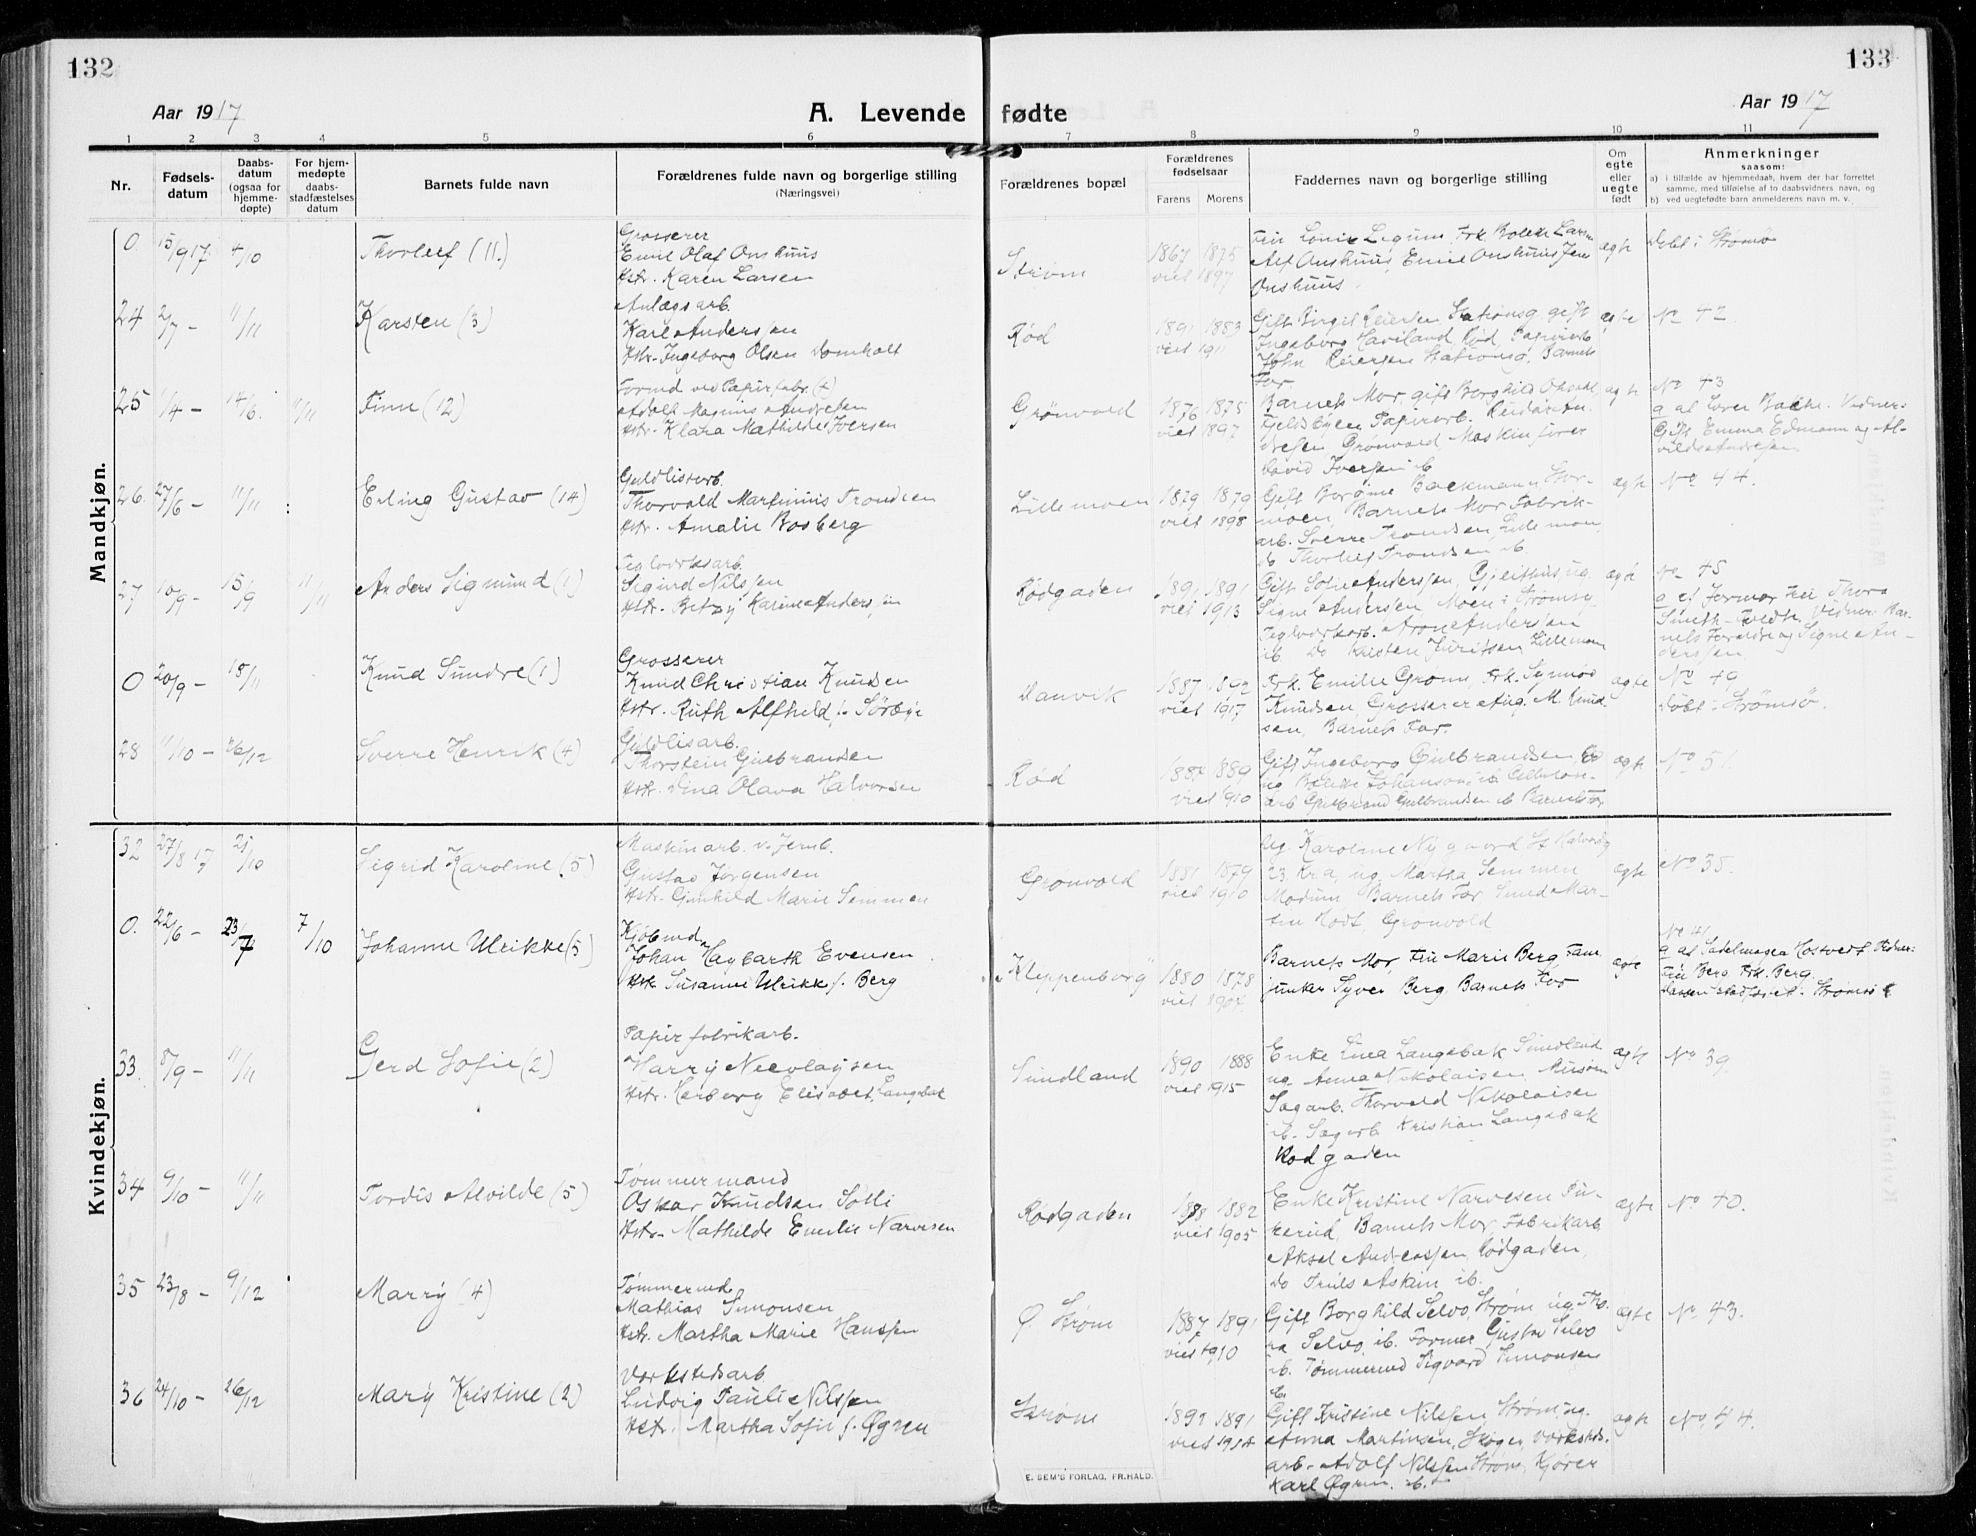 132
133
Aar 1917
A. Levende fødte
Aar 1917
1 2 3 4 5 6 7 8 9 10 11
Nr.
Fødsels-
datum
Daabs-
datum
(ogsaa for
hjemme-
døpte)
For hjem-
medøpte
daabs-
stadfæstelses
datum
Barnets fulde navn
Forældrenes fulde navn og borgerlige stilling
(Næringsvei)
Forældrenes bopæl
Forældrenes
fødselsaar
Farens Morens
Faddernes navn og borgerlige stilling
Om
egte
eller
uegte
født
Anmerkninger
saasom:
a) i tilfælde av hjemmedaab, hvem der har forrettet
samme, med tilføielse af to daabsvidners navn, og
b) ved uegtefødte barn anmelderens navn m. v.
Mandkjøn.
0. 15/9 17 4/10 Thorleif (11.)
Grosserer
Emil Olaf Onshuus
Hstr. Karen Larsen
Strøm
1867 1875
viet 1897
Alf Onshuus, Emil Onshuus, Jens
Onshuus.
ægte
Døbt i Strømsø
24 2/7 – 11/11 Karsten (3)
Anlægsarb.
Karl Anderssen
Hstr. Ingeborg Olsen Domholt
Rød
1891 1883
viet 1911
Gift Birgit Reiersen
Ingeborg Haviland, Rød, Papirarb
John Reiersen Barnets
Far
ægte
No 42.
25 1/4 – 14/6. 11/11 Finn (12)
Formd ved Papirfabr.
Adolf Magnus Andresen
Hstr. Klara Mathilde Iversen
Grønvold
1876 1875
viet 1897
Barnets Mor, gift Borghild
Papirarb. Reidar An-
dresen Grønvold, Maskinfører
David Iversen ib
ægte
No 43
Vidner:
Gift Emma Edmann og Al-
vilde Andresen
26. 27/6 – 11/11 Erling Gustav (14)
Guldlistarb.
Thorvald Martinius Trondsen
Hstr. Amalie Bosberg
Lillemoen
1879 1879
viet 1898
Gift Backmann, Stor-
moen, Barnets Mor, Fabrik-
arb. Sverre Trondsen, Lillemoen
do Thorleif Trondsen ib.
ægte
No 44.
27 10/9 – 15/9 11/11 Anders Sigmund (1)
Teglværksarb.
Sigurd Nilssen
Hstr. Betzy Karine Anderssen
Rødgaden
1891 1891
viet 1913
Gift Sofie Anderssen, Gjeithus, ug.
Signe Anderssen, Moen i Strømsg.
Teglværksarb. Aron Anderssen
ib. Do Kristen Juritsen Lillemoen
ægte
No 45
a af Jormor Fru Thora
Smith- Vidner: Bar-
nets Forældre og Signe An-
derssen
0 20/9 – 18/11 Knud Sundre (1)
Grosserer
Knud Christian Knudsen
Hstr. Ruth Alfhild f. Sørbye
Danvik
1887 1892
viet 1917
Frk. Emilie Gronn, Frk. Synnøv
Knudsen Grosserer Aug. M. Knud-
sen, Barnets Far.
ægte
No 49
Døbt i Strømsø.
28 11/10 – 26/12 Sverre Henrik (4)
Guldlisarb.
Thorstein Gulbrandsen
Hstr. Dina Olava Halvorsen
Rød
1887 1889
viet 1910
Gift Ingeborg Gulbrandsen, Rød
ug Bolette Johanson, ib Cellulos-
arb Gulbrand Gulbrandsen ib Barnets Far
ægte
No 51.
Kvindekjøn.
32 27/8 17 21/10 Sigrid Karoline (5)
Maskinarb. v. Jernb.
Gustav Jørgensen
Hstr. Gunhild Marie Semmen
Grønvold
1881 1879
viet 1910
Ug. Karoline Nygaard St Halvardsg
23. Kra, ug. Martha Semmen
Modum Barnets Far, Smed Mar-
tin Hodt, Grønvold
ægte
No 35.
0. 22/6 – 23/7 7/10 Johanne Ulrikke (5)
Kjøbmd.
Johan Hagbarth Evensen
Hstr. Susanne Ulrikke f. Berg
"Kleppenborg"
1880 1878
viet 1904
Barnets Mor, Fru Marie Berg Fann-
junker Syver Berg Barnets Far
ægte
No 41
Vidner:
Fru Berg, Frk. Berg.
33. 8/9 – 11/11 Gerd Sofie (2)
Papirfabrikarb.
Harry Nicolaysen
Hstr. Herborg Elisabet Langebæk
Sundland
1890 1888
viet 1915
Enke Lina Langebæk Sundland
ug. Anna Nikolaisen
Sagarb. Thorvald Nikolaisen
ib. Sagarb Kristian Langebæk
Rødgaden
ægte
No 39.
34 9/10 – 11/11 Tordis Alvilde (5)
Tømmermand
Oskar Knudsen Solli
Hstr. Mathilde Emilie Narvesen
Rødgaden
1883 1882
viet 1905
Enke Kristine Narvesen Fu-
rerud, Barnets Mor, Fabrikarb
Aksel Anderssen, Rødgaden,
Do Truls Askim ib.
ægte
No 40.
35 23/8 – 9/12 Marry (4)
Tømmermd
Mathias Simonsen
Hstr. Martha Marie Hanssen
Ø. Strøm
1887 1891
viet 1910
Gift Borghild Selvo, Strøm, ug. Tho-
ra Selvo, ib. Former Gustav Selvo
ib. Tømmermd Sigvard Simonsen
ægte
No. 43.
36 24/10 – 26/12 Mary Kristine (2)
Værkstedsarb
Ludvig Pauli Nilssen
Hstr. Martha Sofie f. Øgren
Strøm
1892 1891
viet 1914
Gift Kristine Nilssen, Strøm, ug.
Anna Martinsen, Skoger, Værksteds-
arb. Adolf Nilssen Strøm, Kjører
Karl Øgren. ib.
ægte
No. 44.
E. SEM'S FORLAG, FR.HALD.